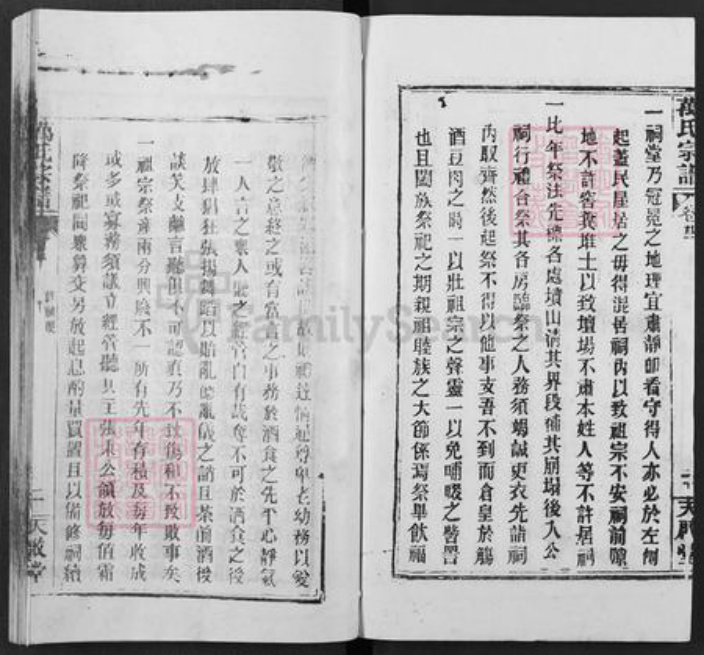 萬氏宗譜 卷四
天敘堂
一祠堂乃冠冕之地理宜肅靜即看守得人亦必於左側
起蓋民屋居之毋得混居祠內以致祖宗不安祠前隙
地不許窖糞堆土以致壇場不肅本姓人等不許居祠
一比年祭法先標各處墳山清其界段補其崩塌後入公
祠行禮合祭其各房臨祭之人務須竭誠更衣先詣祠
內取齊然後起祭不得以他事支吾不到而倉皇於觴
酒豆肉之時一以壯祖宗之聲靈一以免哺啜之誚詈
也且闔族祭祀之期親祖睦族之大節係焉祭畢飲福
尊卑老幼務以愛
敬之意終之或有當言之事務於酒食之先平心靜氣
一人言之眾人壯之經官自有裁奪不可於酒食之後
放肆猖狂張揚舞蹈以貽亂儀之誚且茶前酒後
談笑支離言雖俱不可認真乃不致傷和不致敗事矣
一祖宗祭產兩分興廢不一所有先年存積及每年收成
或多或寡務須議立經管聽其主張秉公領放每值霜
降祭祀同眾算交另放起息酌量買置且以備修祠續
萬氏宗譜
一
天敘堂
FamilySearch